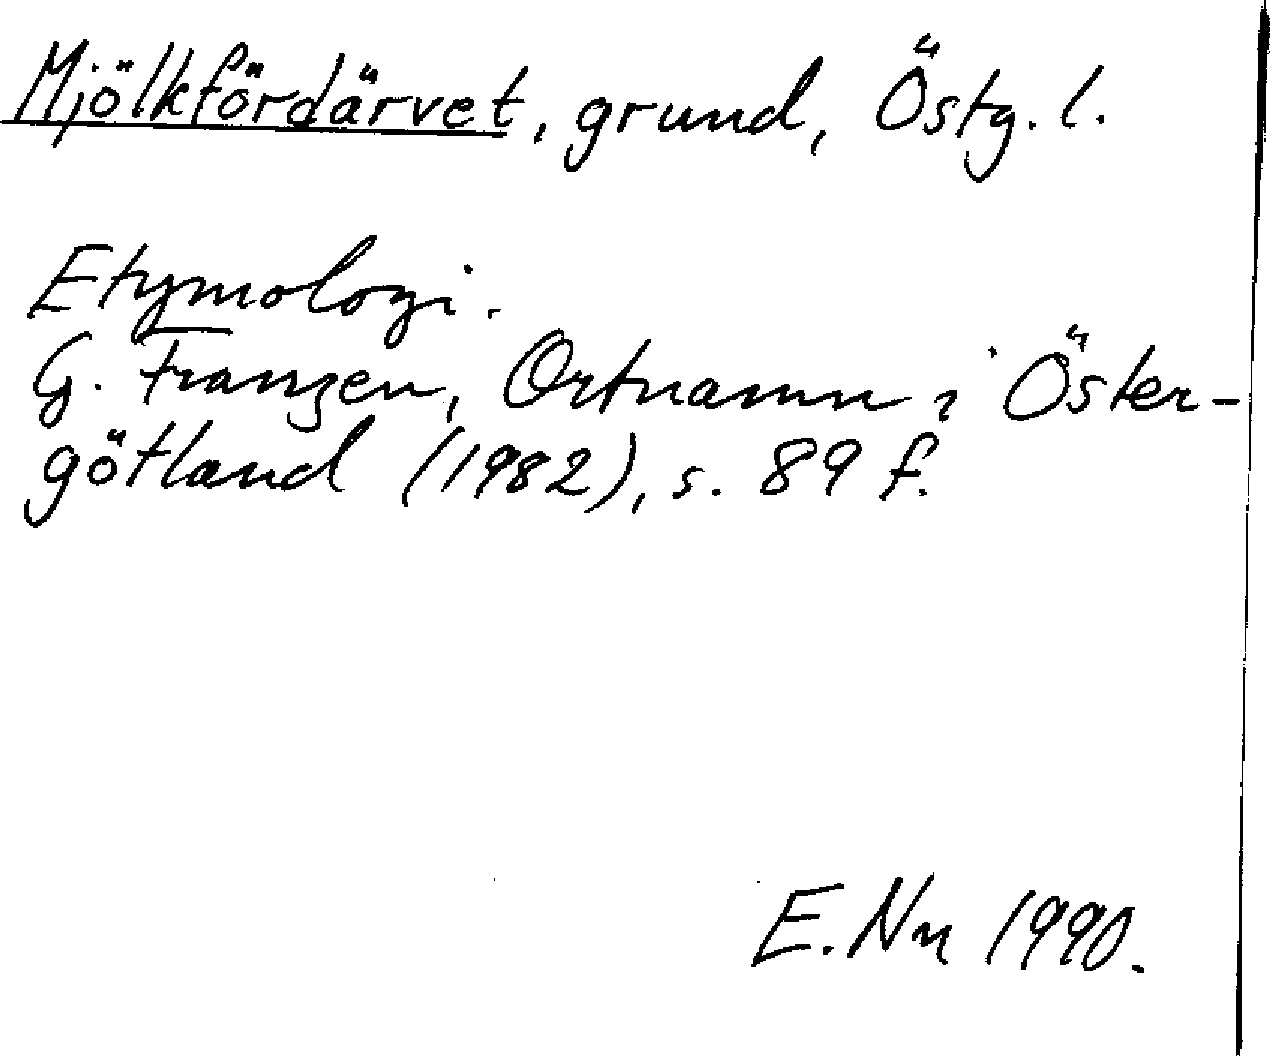 Mjölkfördärvet, grund, Östg. l.
Etymologi.
G. Franzen, Ortnamn i Öster-
götland (1982), s. 89 f.
E. Nn 1990.